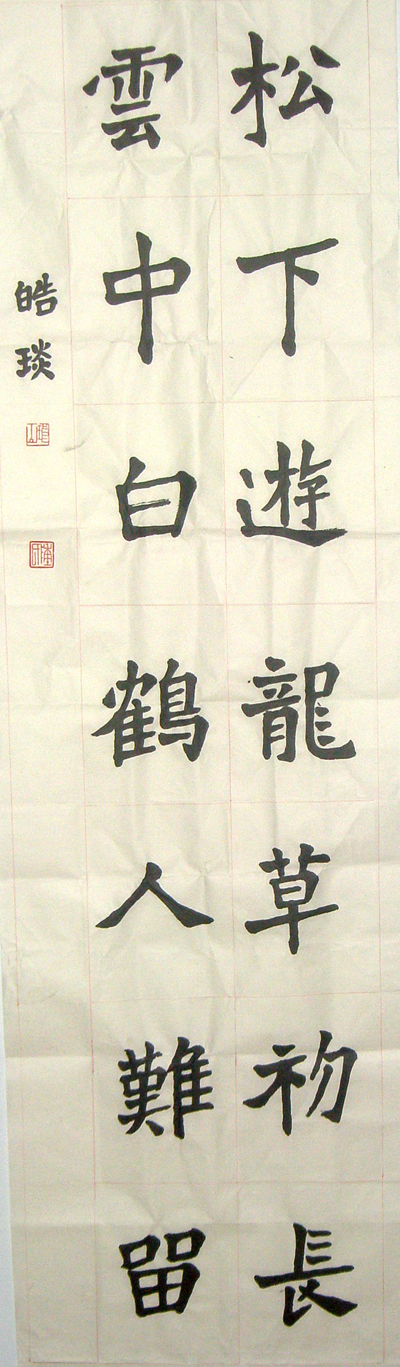 松下遊龍草初長
雲中白鶴人難留
皓琰